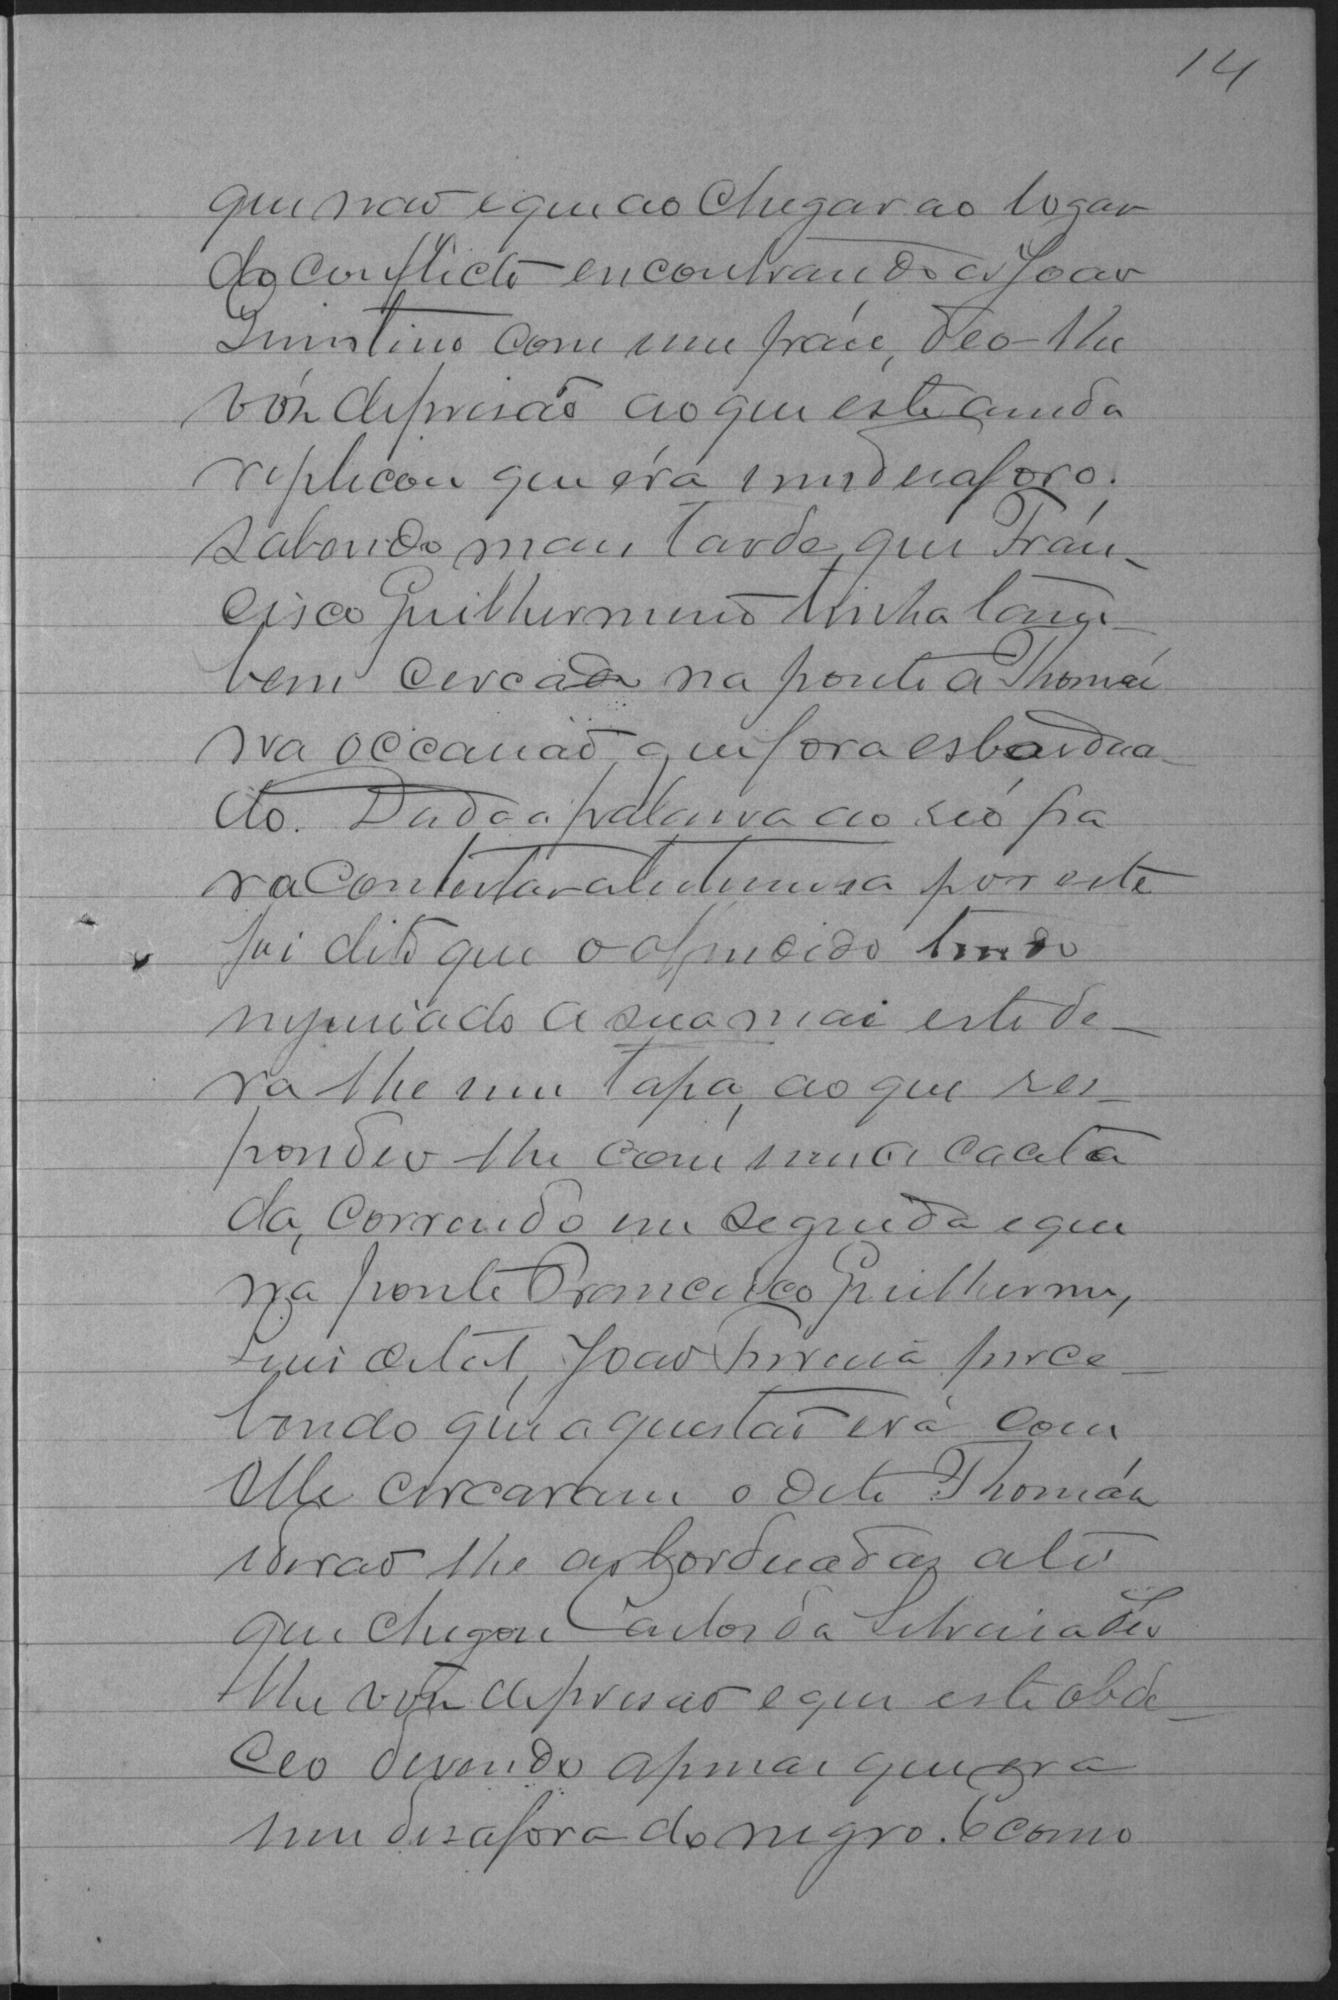 14
que não e que ao chegar ao logar
do conflicto encontrando a Joao
Quintino com um páu, deo-lhe
vóz de prisão ao que este ainda
replicou que éra um desaforo.
Sabendo mais tarde que Frán-
cisco Guilhermino tinha tam-
bem cercado na ponte a Thomáz
na occasião que fora esbordua-
do. Dada a palavra ao réo pa
ra contestar a testemunha por este
foi dito que o offendido tendo
injuriado a sua mai este de-
ra lhe um tapa, ao que res-
pondeu lhe com uma caceta
da, correndo em seguida e que
na ponte Francisco Guilherme,
Luis de tal, Joao perce-
bendo que a questão erá com
elle cercaram o dito Thomáz
derão lhe as borduadas até
que chegou Carlos da Silveira deu
lhe vóz de prisão e que este obde-
ceo dizendo apenas que era
um desaforado negro. E como